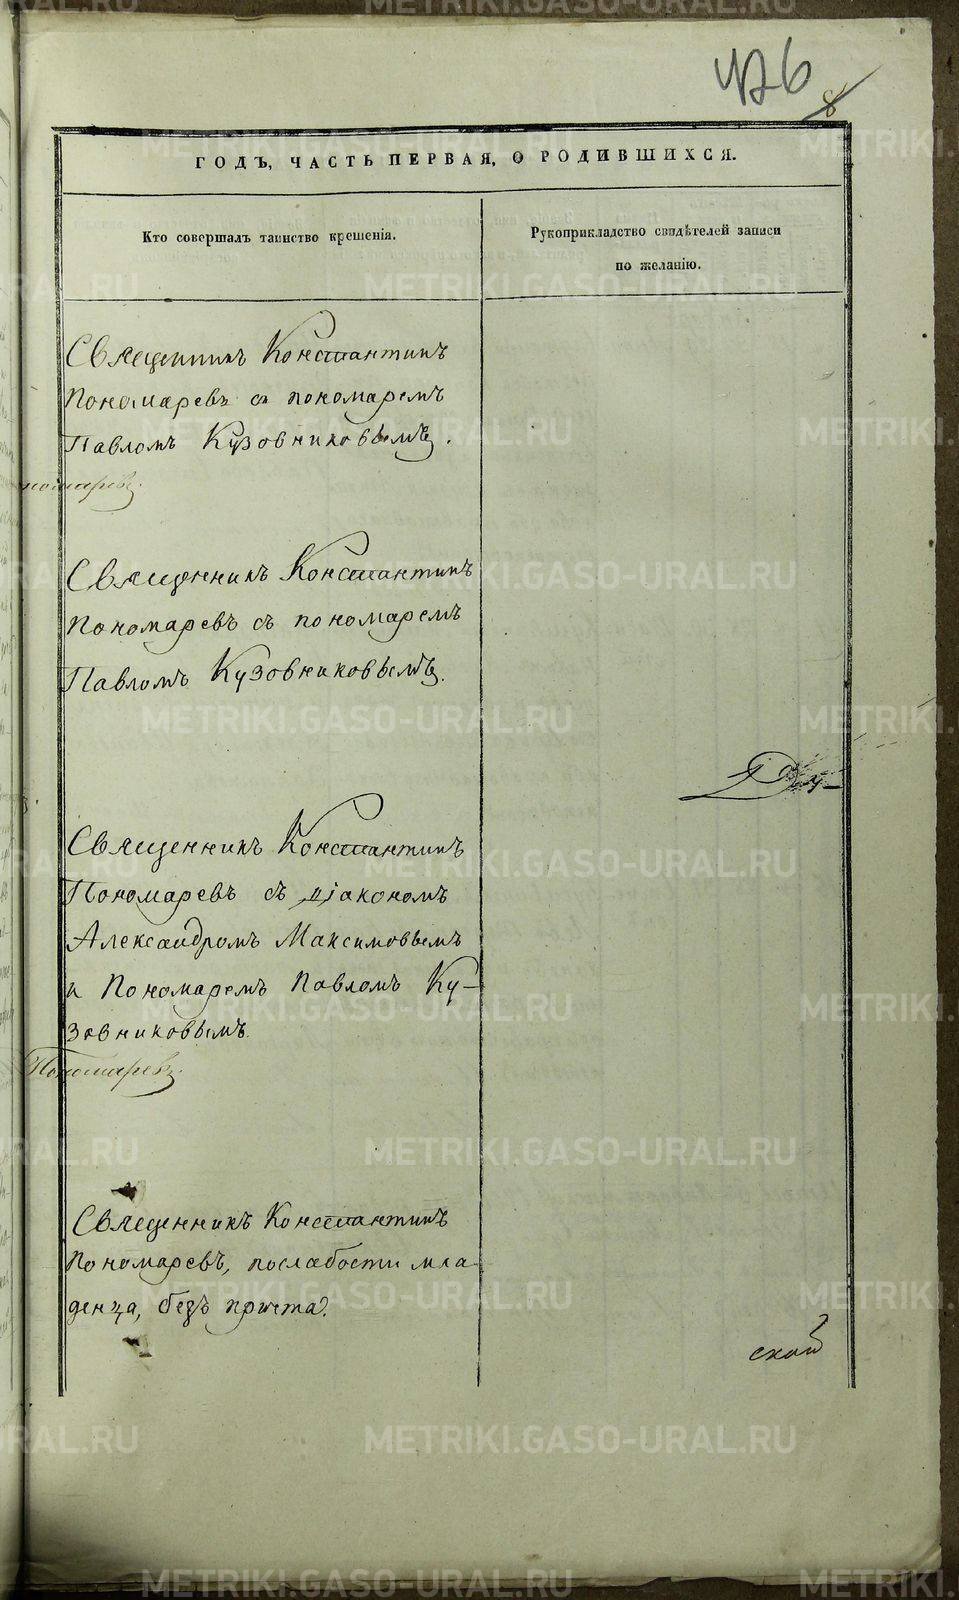 426
8
ГОДЪ, ЧАСТЬ ПЕРВАЯ, О РОДИВШИХСЯ.
Кто совершалъ таинство крещенія.
Рукоприкладство свидѣтелей записи
по желанію.
Священникъ Константинъ
Пономаревъ съ пономаремъ
Павломъ Кузовниковымъ.
номаревъ.
Священникъ Константинъ
Пономаревъ съ пономаремъ
Павломъ Кузовниковымъ.
Священникъ Константинъ
Пономаревъ съ діакономъ
Александромъ Максимовымъ
и Пономаремъ Павломъ Ку-
зовниковымъ.
Пономаревъ.
Священникъ Константинъ
Пономаревъ, послабости мла-
денца, безъ причта.
ской
METRIKI.GASO-URAL.RU